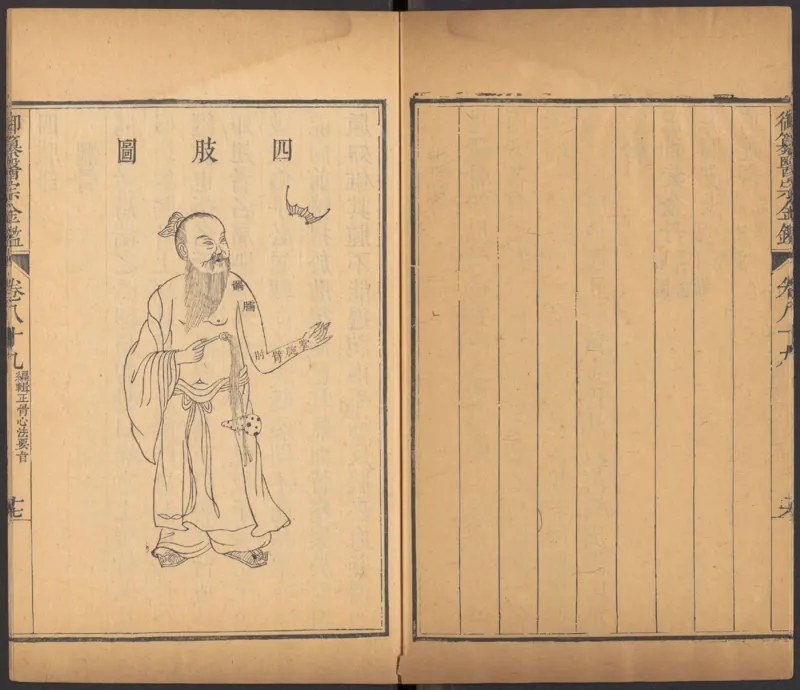 御纂醫宗金鑑
卷八十九
四肢圖
髃
臑
肘
臂
腕
掌
御纂醫宗金鑑
卷八十九
編輯正骨心法要旨